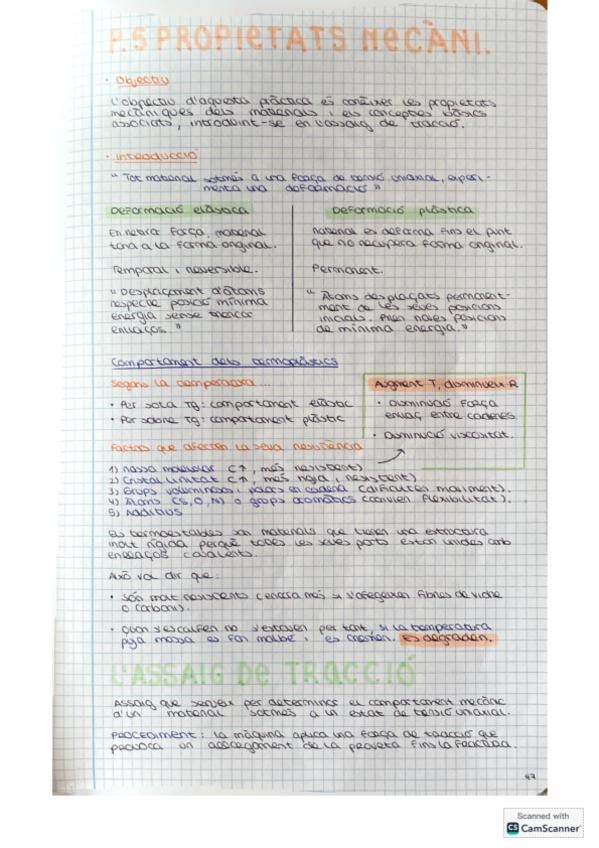 P.5 PROPIETATS MECÀNI.
· Objectiu
L'objectiu d'aquesta pràctica és conèixer les propietats
mecàniques dels materials i els conceptes bàsics
associats, introduint-se en l'assaig de tracció.
· Introducció
"Tot material sotmès a una força de tensió uniaxial, experi-
menta una deformació"
Deformació elàstica
En retirar força, material
torna a la forma original.
Temporal i reversible.
"Desplaçament d'àtoms
respecte posició mínima
energia sense trencar
enllaços."
Deformació plàstica
Material es deforma fins el punt
que no recupera forma original.
Permanent.
"Àtoms desplaçats permanent-
ment de les seves posicions
inicials. Prenen noves posicions
de mínima energia."
Comportament dels termoplàstics
Segons la temperatura...
• Per sota Tg: comportament elàstic
• Per sobre Tg: comportament plàstic
Augment T, disminueix R
• disminució força
enllaç entre cadenes
• disminució viscositat.
Factors que afecten la seva resistència
1) Massa molecular (↑, més resistent)
2) Cristal·linitat (↑, més rígid i resistent)
3) Grups voluminosos i polars en cadena (dificulten moviment).
4) Àtoms (S, O, N) o grups aromàtics (canvien flexibilitat).
5) Additius
Els termoestables són materials que tenen una estructura
molt rígida perquè totes les seves parts estan unides amb
enllaços covalents.
Això vol dir que:
• Són molt resistents (encara més si s'afegeixen fibres de vidre
o carboni).
• Quan s'escalfen no s'estoven per tant, si la temperatura
puja massa es fan malbé i es cremen. Es degraden.
L'ASSAIG DE TRACCIÓ
Assaig que serveix per determinar el comportament mecànic
d'un material sotmès a un estat de tensió uniaxial.
PROCEDIMENT: la màquina aplica una força de tracció que
provoca un allargament de la proveta fins la fractura.
47
Scanned with
CS CamScanner